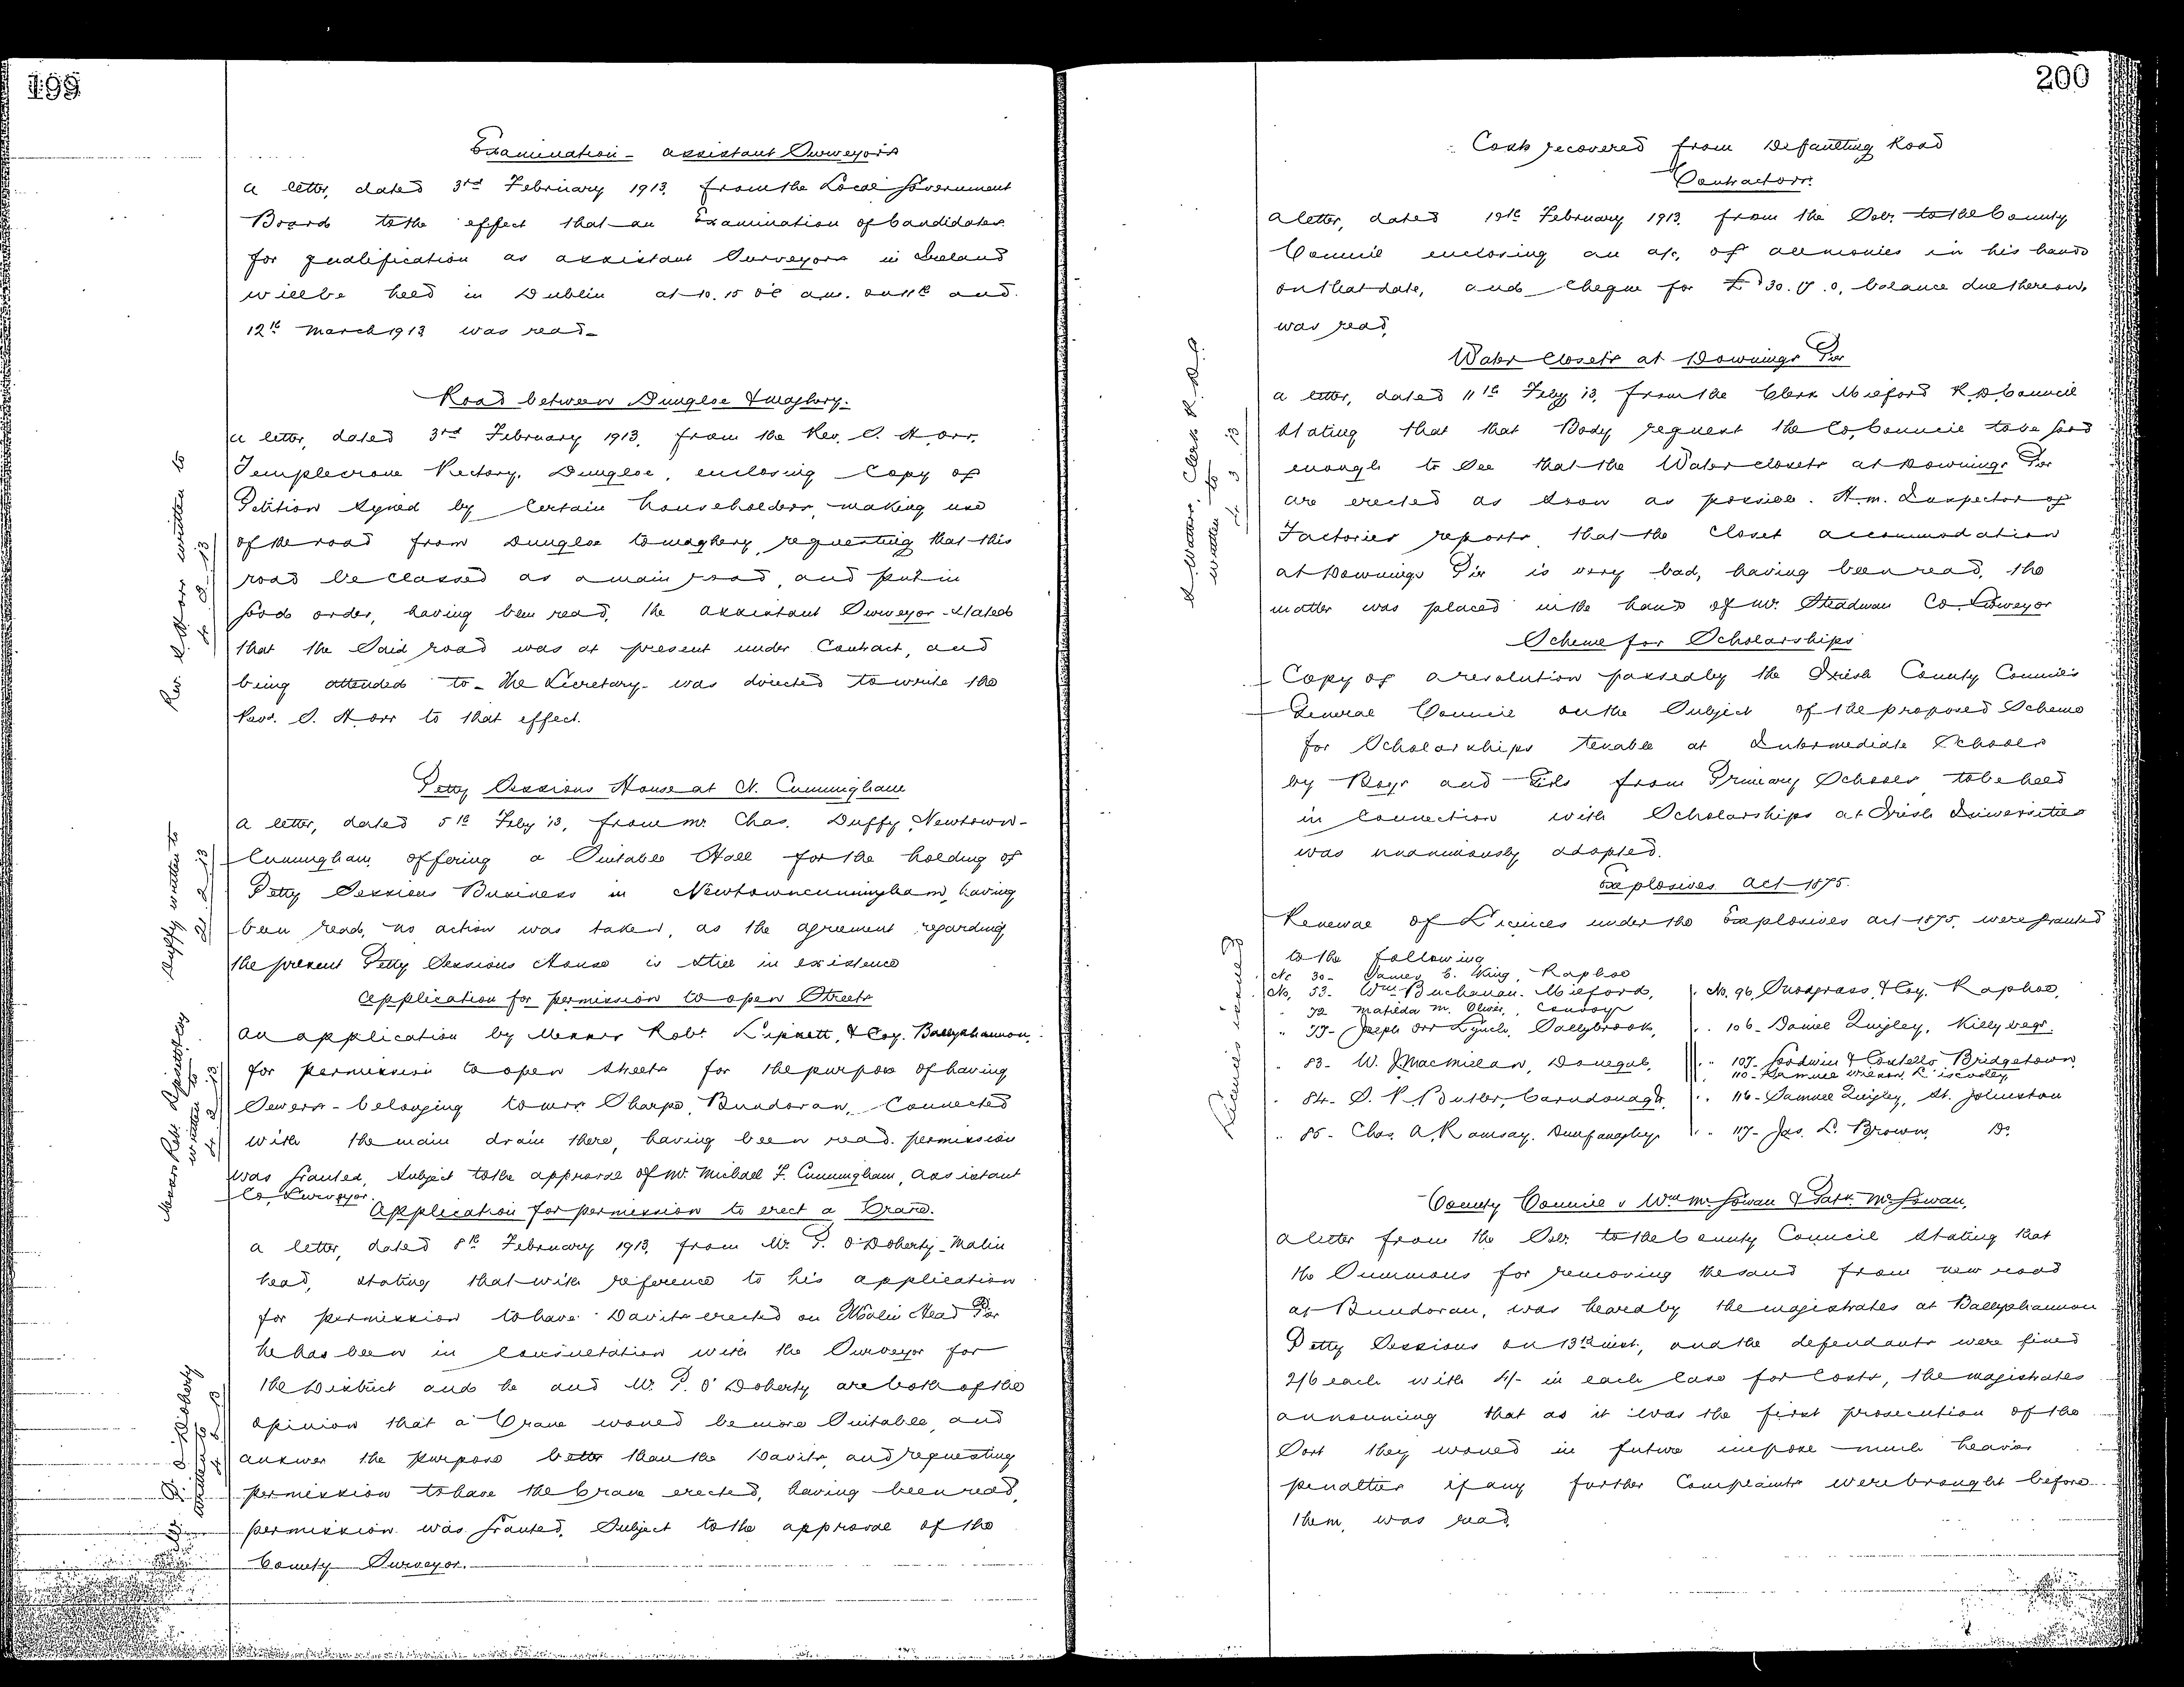 199
Examination - Assistant Surveyors
A letter, dated 3rd February 1913, from the Local Government
Board to the effect that an Examination of Candidates
for qualification as Assistant Surveyors in Ireland
will be held in Dublin at 10.15 o'c a.m. on 11th and
12th March 1913 was read -
Road between Dungloe & Maghery.
A letter, dated 3rd February 1913, from the Rev. S. H. Orr,
Templecrone Rectory, Dungloe, enclosing Copy of
Petition signed by Certain householders, making use
of the road from Dungloe to Maghery, requesting that this
road be classed as a main road, and put in
good order, having been read, the Assistant Surveyor stated
that the Said road was at present under Contract, and
being attended to - The Secretary was directed to write the
Revd. S. H. Orr to that effect.
Rev. S. H. Orr written to
4. 3. 13
Petty Sessions House at N. Cunningham
A letter, dated 5th Feby '13, from Mr. Chas. Duffy, Newtown-
Cunningham, offering a Suitable Hall for the holding of
Petty Sessions Business in Newtowncunningham, having
been read, no action was taken, as the agreement regarding
the present Petty Sessions House is still in existence
Duffy written to
21. 2. 13
Application for permission to open Streets
An application by Messrs Robt. & Coy. Ballyshannon,
for permission to open streets for the purpose of having
Sewers - belonging to Mrs. Sharpe, Bundoran, Connected
with the main drain there, having been read. permission
was granted, Subject to the approval of Mr. Michael F. Cunningham, Assistant
Co. Surveyor.
Messrs Robt. & Coy
written to
4. 3. 13
Application for permission to erect a Crane.
A letter, dated 8th February 1913, from Mr. P. O'Doherty, Malin
head, stating that with reference to his application
for permission to have Davits erected on Malin Head Pier
he has been in Consultation with the Surveyor for
the District and he and Mr. P. O'Doherty are both of the
opinion that a Crane would be more Suitable, and
answer the purpose better than the Davits, and requesting
permission to have the Crane erected, having been read,
permission was granted, Subject to the approval of the
County Surveyor.
P. O'Doherty
written to
200
Costs recovered from Defaulting Road
Contractors.
A letter, dated 19th February 1913, from the Solr. to the County
Council enclosing an a/c. of all monies in his hands
on that date, and Cheque for £30. 17. 0, balance due thereon,
was read,
Water Closets at Downings Pier
A letter, dated 11th Feby 13, from the Clerk Milford R.D. Council
Stating that that Body request the Co. Council to be good
enough to See that the Water closets at Downings Pier
are erected as soon as possible. H.M. Inspector of
Factories reports that the Closet accommodation
at Downings Pier is very bad, having been read, the
matter was placed in the hands of Mr. Steadman Co. Surveyor
Clerk R. D. C.
written to
4. 3. 13
Scheme for Scholarships
Copy of a resolution passed by the Irish County Councils
General Council on the Subject of the proposed Scheme
for Scholarships tenable at Intermediate Schools
by Boys and Girls from Primary Schools to be held
in Connection with Scholarships at Irish Universities
was unanimously adopted.
Explosives Act 1875.
Renewal of Licences under the Explosives Act 1875, were granted
to the following
No. 30 - James C. King, Raphoe
No. 53. Wm. Buchanan. Milford,
72 Matilda M. Oliver, Convoy
" 77 - Joseph Orr Lynch, Ballybrook,
" 83 - W. J. Macmillan, Donegal,
" 84 - S. R. Butler, Carndonagh,
" 85 - Chas. A. Ramsay. Dunfanaghy.
No. 96, Snodgrass & Coy. Raphoe,
" 106 - Daniel Quigley, Killybegs.
" 107 - Godwin & Costello, Bridgetown,
110 - Samuel Wilson, Liscooley,
" 116 - Samuel Quigley, St. Johnston
" 117 - Jas. L. Brown, Do.
Licences issued
County Council v Wm. McGowan & Patk. McGowan,
A letter from the Solr. to the County Council Stating that
the Summons for removing the sand from new road
at Bundoran, was heard by the magistrates at Ballyshannon
Petty Sessions on 13th inst., and the defendants were fined
2/6 each with 4/- in each Case for Costs, the magistrates
announcing that as it was the first prosecution of the
Sort they would in future impose much heavier
penalties if any further Complaints were brought before
them, was read,